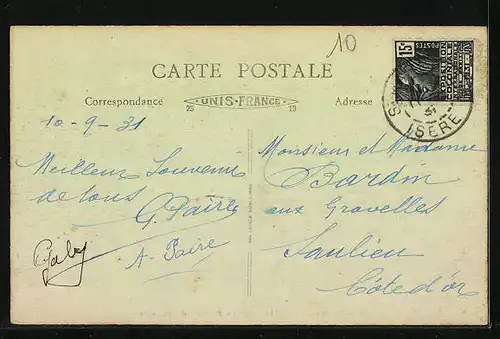 10
CARTE POSTALE
Correspondance
25 UNIS-FRANCE 13
Adresse
15c
POSTES
ISERE
31
10-9-31
Meilleur Souvenir
de tous
G. Paire
A. Paire
Gaby
Monsieur et Madame
Bardin
aux Gravelles
Saulieu
Côte d'or